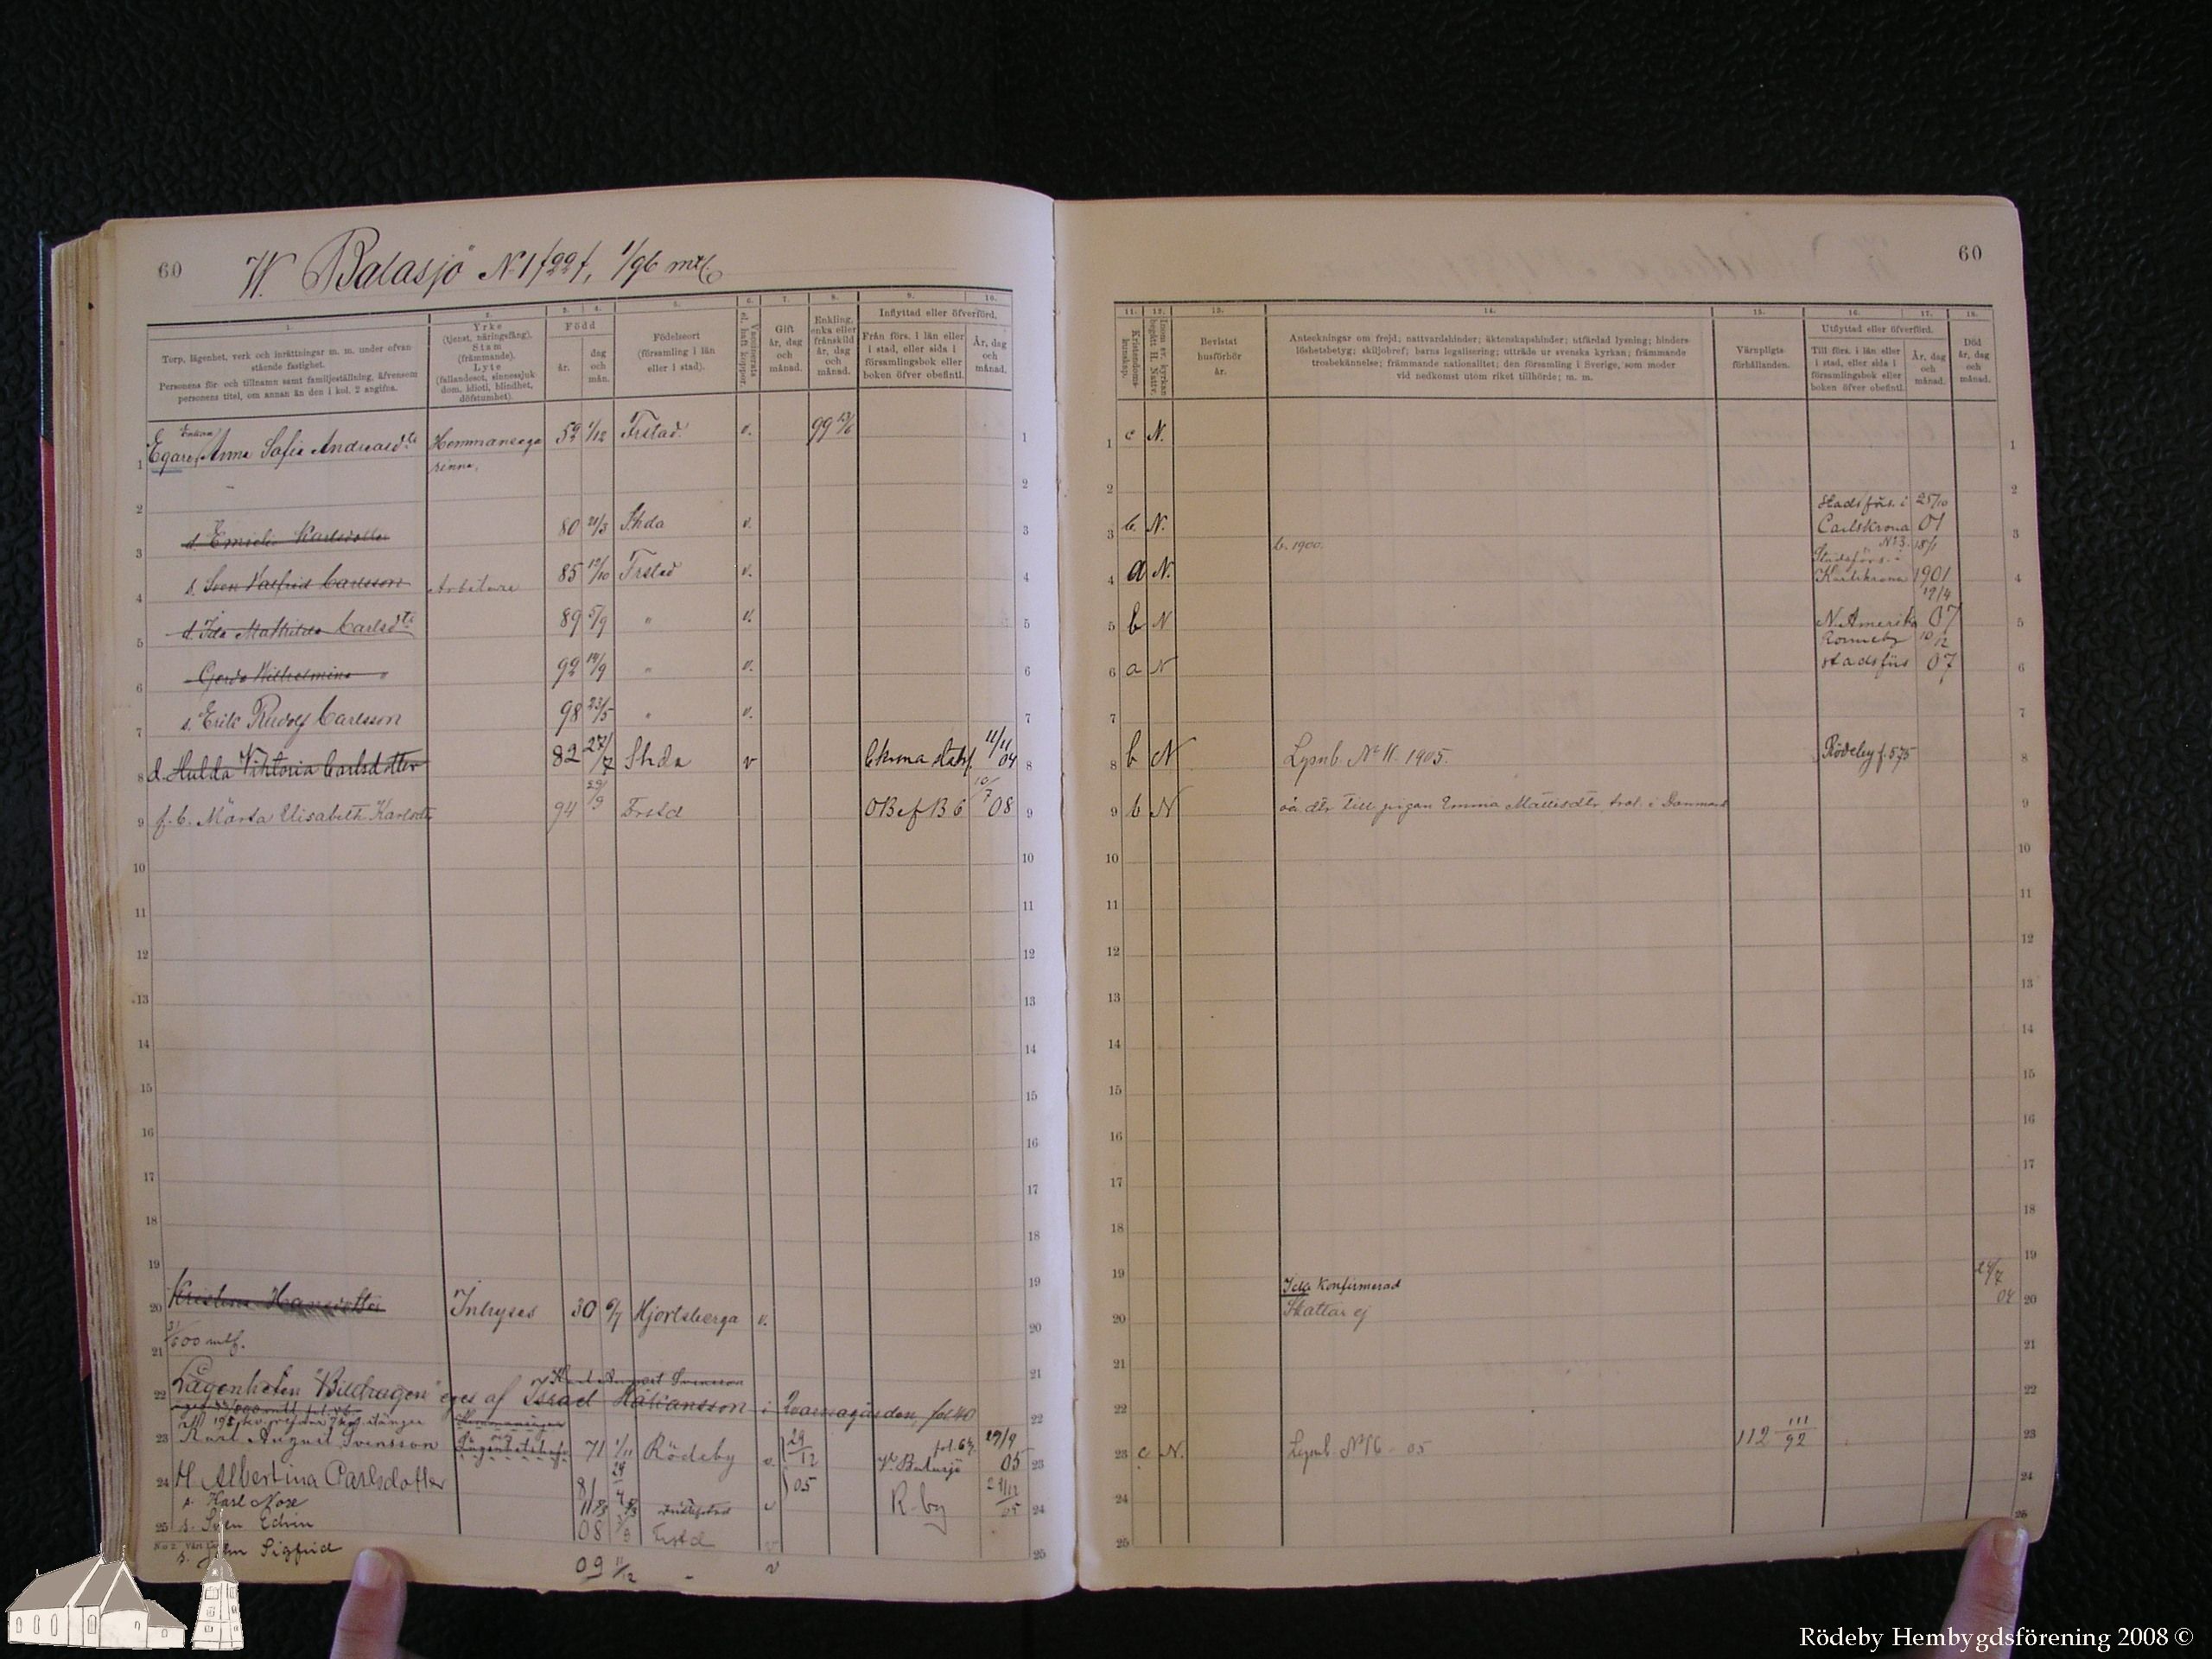 60
W. Balasjö No 1 f 22 f, 1/96 mtl.
1. 2. 3. 4. 5. 6. 7. 8. 9. 10.
Torp, lägenhet, verk och inrättningar m. m. under ofvanstående fastighet.
Personens för- och tillnamn samt familjeställning, äfvensom personens titel, om annan än den i kol. 2 angifna.
Yrke (tjenst, näringsfång), Stam (främmande), Lyte (fallandesot, sinnessjukdom, idioti, blindhet, döfstumhet).
Född
år.
dag och mån.
Födelseort (församling i län eller i stad).
Vaccinerats el. haft koppor.
Gift år, dag och månad.
Enkling, enka eller frånskild år, dag och månad.
Inflyttad eller öfverförd.
Från förs. i län eller i stad, eller sida i församlingsbok eller boken öfver obefintl.
År, dag och månad.
1 Egare, Enkan Anna Sofia Andreasdtr Hemmansega 59 1/12 Frstad. v. 99 1
rinna.
2 2
3 d. Emieli Karlsdotter 80 21/3 Shda v. 3
4 s. Sven Valfrid Carlsson Arbetare 85 12/10 Frstad v. 4
5 d. Ida Mathilda Carlsdtr 89 5/9 " v. 5
6 Gerda Wilhelmina " 92 14/9 " v. 6
7 s. Erik Rudolf Carlsson 98 23/5 " v. 7
8 d. Hulda Viktoria Carlsdotter 82 27/7 Shda v Ckrona stadsf. 11/11 04 8
9 f.b. Märta Elisabeth Karlsdtr 94 29/9 Frstd OBef B 6 10/7 08 9
10 10
11 11
12 12
13 13
14 14
15 15
16 16
17 17
18 18
19 19
20 Kristina Hansdotter Inhyses 30 6/7 Hjortsberga v. 20
21 /600 mtl. 21
Karl August Svensson
22 Lägenheten "Bildragen" eges af Israel Håkansson i Qvarnagården, fol 40 22
23 Karl August Svensson Lägenhetsegare 71 1/11 Rödeby v. 29/12 05 fol. 67. V. Balasjö 29/9 05 23
24 H Albertina Carlsdotter 81 R-by 05 24
s. Karl Noxe
25 s. Sven Edvin 08 Frstd v 25
s. John Sigfrid 09 11/12 - v
60
11. 12. 13. 14. 15. 16. 17. 18.
Kristendomskunskap.
Inom sv. kyrkan begått H. Nattv.
Bevistat husförhör år.
Anteckningar om frejd; nattvardshinder; äktenskapshinder; utfärdad lysning; hinderslöshetsbetyg; skiljobref; barns legalisering; utträde ur svenska kyrkan; främmande trosbekännelse; främmande nationalitet; den församling i Sverige, som moder vid nedkomst utom riket tillhörde; m. m.
Värnpligtsförhållanden.
Utflyttad eller öfverförd.
Till förs. i län eller i stad, eller sida i församlingsbok eller boken öfver obefintl.
År, dag och månad.
Död år, dag och månad.
1 c N. 1
2 2
3 b. N. b. 1900. Stadsförs. i Carlskrona 25/10 01 3
4 a N. No 3. Stadsförs. i Karlskrona 18/1 1901 4
5 b N N. Amerika 19/4 07 5
6 a N Ronneby stadsförs 10/12 07 6
7 7
8 b N Lysnb. No 11. 1905. Rödeby f. 575 8
9 b N oä dtr till pigan Emma Mattesdtr trol. i Danmark 9
10 10
11 11
12 12
13 13
14 14
15 15
16 16
17 17
18 18
19 Icke konfirmerad 24/7 04 19
20 Skattar ej 20
21 21
22 22
23 c N. Lysnb. No 16 - 05 112 111/92 23
24 24
25 25
Rödeby Hembygdsförening 2008 ©